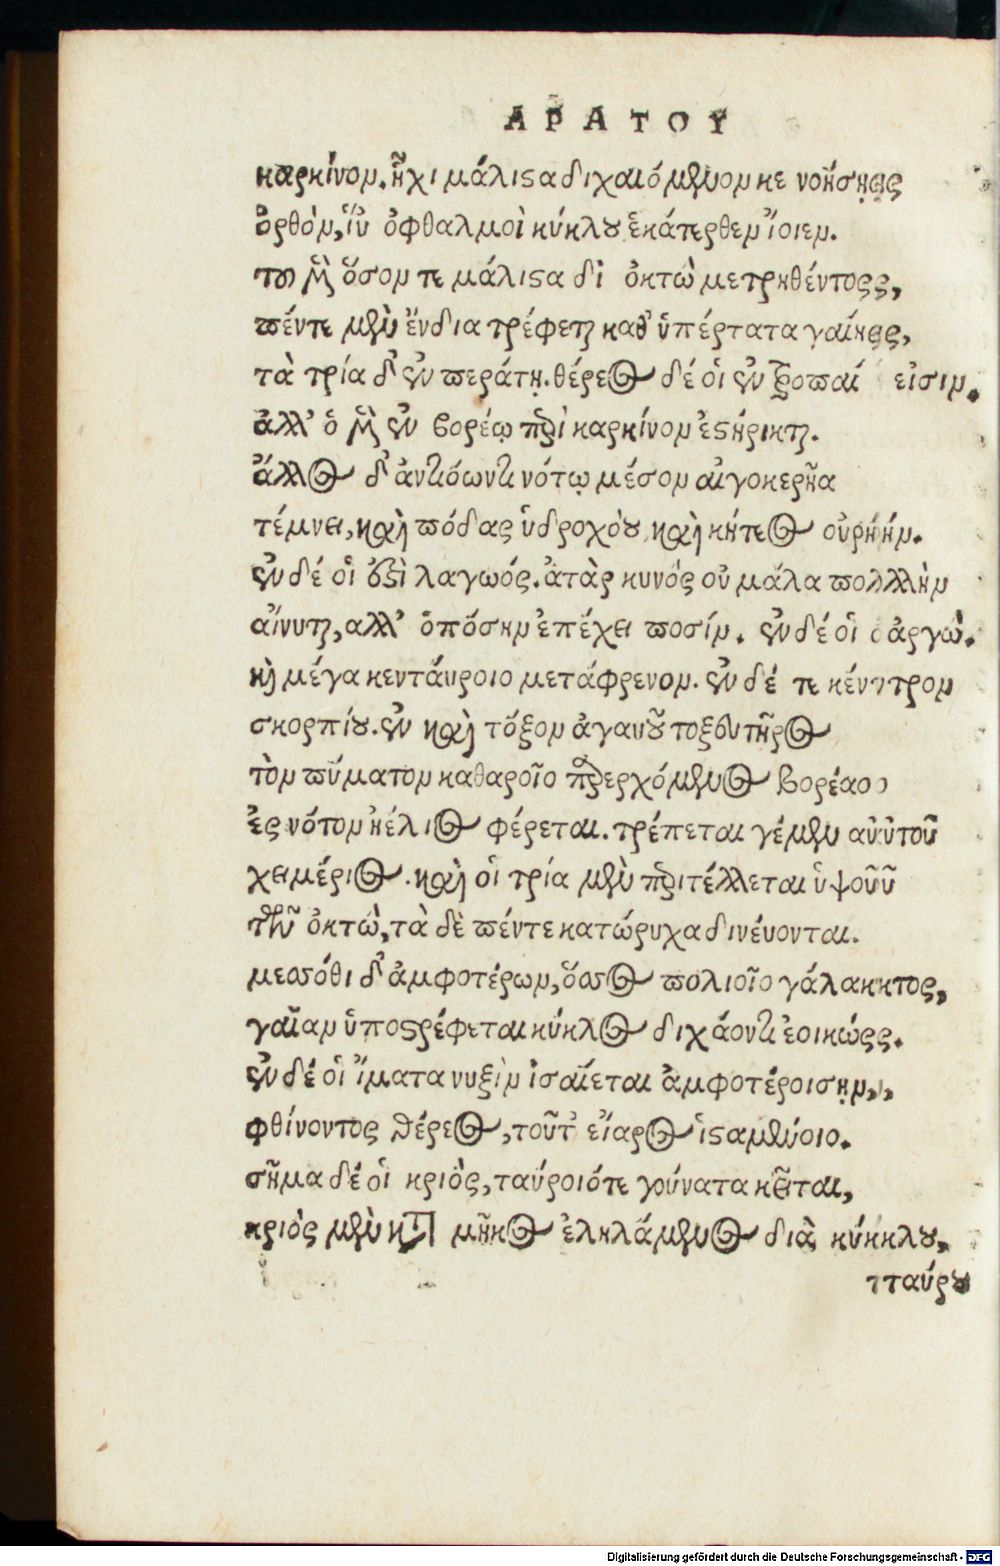 ΑΡΑΤΟΥ
καρκίνον. ἧχι μάλιστα διχαιόμενόν κε νοήσῃς
ὀρθὸν, ἵν ὀφθαλμοὶ κύκλου ἑκάτερθεν ἴοιεν.
τοῦ μὲν ὅσον τε μάλιστα δι ὀκτὼ μετρηθέντος,
πέντε μὲν ἔνδια τρέφεται καθ ὑπέρτατα γαίης,
τὰ τρία δ' ἐν περάτῃ. θέρεος δέ οἱ ἐν τροπαί εἰσιν.
ἀλλ' ὁ μὲν ἐν βορέῳ περὶ καρκίνον ἐστήρικται.
ἄλλος δ' ἀντιόωντι νότῳ μέσον αἰγοκερῆα
τέμνει, καὶ πόδας ὑδροχόου, καὶ κήτεος οὐρήν.
ἐν δέ οἱ ἐστὶ λαγωός. ἀτὰρ κυνός οὐ μάλα πολλὴν
αἴνυται, ἀλλ' ὁπόσην ἐπέχει ποσίν. ἐν δέ οἱ ἀργὼ.
καὶ μέγα κενταύροιο μετάφρενον. ἐν δέ τε κέντρον
σκορπίου. ἐν καὶ τόξον ἀγαυοῦ τοξευτῆρος
τὸν πύματον καθαροῖο παρερχόμενος βορέαο
ἐς νότον ἠέλιος φέρεται. τρέπεταί γε μὲν αὐτοῦ
χειμέριος. καὶ οἱ τρία μὲν περιτέλλεται ὑψοῦ
τῶν ὀκτὼ, τὰ δὲ πέντε κατώρυχα δινέυονται.
μεσσόθι δ' ἀμφοτέρων, ὅσσος πολιοῖο γάλακτος,
γαῖαν ὑποστρέφεται κύκλος διχάοντι ἐοικώς.
ἐν δέ οἱ ἤματα νυξὶν ἰσαίεται ἀμφοτέροισιν,
φθίνοντος θέρεος, τοῦτ' εἴαρος ἱσταμένοιο.
σῆμα δέ οἱ κριὸς, ταύροιό τε γούνατα κεῖται,
κριὸς μὲν κατὰ μῆκος ἐληλάμενος διὰ κύκλου,
ταύρου
Digitalisierung gefördert durch die Deutsche Forschungsgemeinschaft - DFG